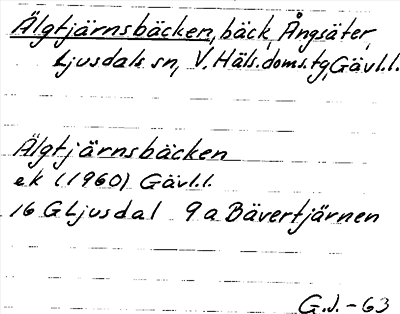 Älgtjärnsbäcken, bäck, Ångsäter,
Ljusdals sn, V. Häls. doms.tg, Gävl.l.
Älgtjärnsbäcken
ek (1960) Gävl.l.
16 G Ljusdal 9 a Bävertjärnen
G.J.-63